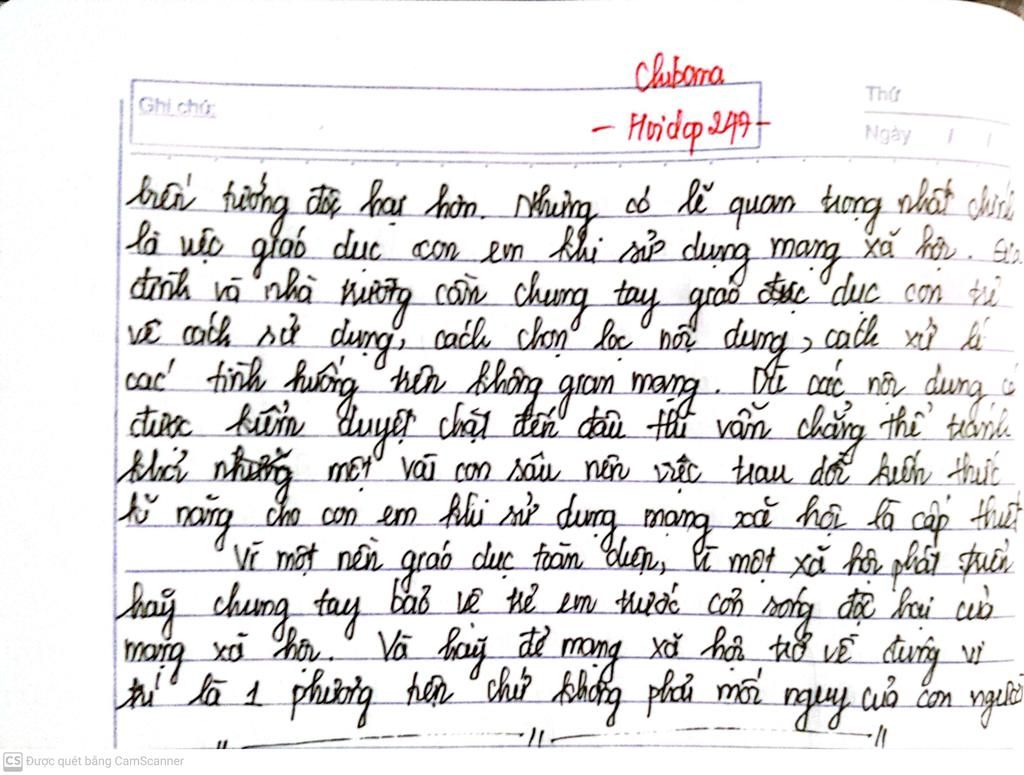 Chiboma
Ghi chú:
Thứ
- Hoidap 249 -
Ngày / /
biến tướng độc hại hơn. Nhưng có lẽ quan trọng nhất chính
là việc giáo dục con em khi sử dụng mạng xã hội. Gia
đình và nhà trường cần chung tay giáo dục con trẻ
về cách sử dụng, cách chọn lọc nội dung, cách xử lí
các tình huống trên không gian mạng. Dù các nội dung có
được kiểm duyệt chặt đến đâu thì vẫn chẳng thể tránh
khỏi những một vài con sâu nên việc trau dồi kiến thức
kĩ năng cho con em khi sử dụng mạng xã hội là cấp thiết
Vì một nền giáo dục toàn diện, vì một xã hội phát triển
hãy chung tay bảo vệ trẻ em trước cơn sóng độc hại của
mạng xã hội. Và hãy để mạng xã hội trở về đúng vị
trí là 1 phương tiện chứ không phải mối nguy của con người
CS Được quét bằng CamScanner